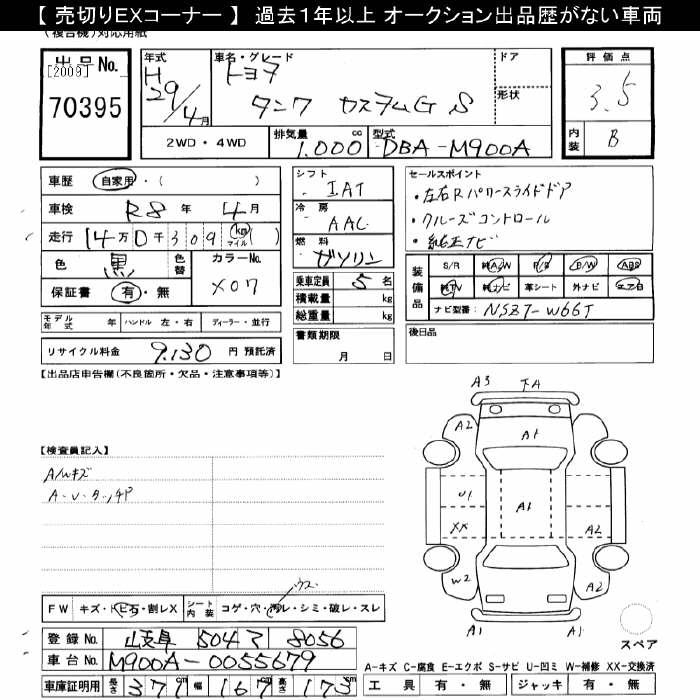 【 売切りEXコーナー 】 過去1年以上 オークション出品歴がない車両
(複合機)対応用紙
出品No.
[2009]
70395
年式
H
29/4月
車名・グレード
トヨタ
タンク カスタムG S
ドア
形状
評価点
3.5
内装 B
2WD・4WD
排気量 1.000 cc
型式 DBA-M900A
車歴 自家用・( )
車検 R8 年 4月
走行 14万0千309 (km マイル)( )
色 黒 色替
カラーNo. X07
保証書 有・無
シフト
IAT
冷房
AAC
燃料
ガソリン
乗車定員 5名
積載量 kg
総重量 kg
セールスポイント
・左右Rパワースライドドア
・クルーズコントロール
・純正ナビ
装備品
S/R 純A/W P/S P/W ABS
純TV 純ナビ 革シート 外ナビ エアB
ナビ型番: NSZT-W66T
モデル年式 年 ハンドル 左・右 ディーラー・並行
リサイクル料金 9.130 円 預託済
書類期限
月 日
後日品
【出品店申告欄(不良箇所・欠品・注意事項等)】
【検査員記入】
A/Wキズ
A・U・タ・チP
A3 下A
A2 A1
U1 A1
XX A2
W2 A2
A1 A1
スペア
FW キズ・トビ石・割レX シート内装 コゲ・穴・汚レ・シミ・破レ・スレ
登録No. 岐阜 504 マ 8056
車台No. M900A-0055679
車庫証明用 長さ 371cm 幅 167cm 高さ 173cm
A-キズ C-腐食 E-エクボ S-サビ U-凹ミ W-補修 XX-交換済
工具 有・無 ジャッキ 有・無